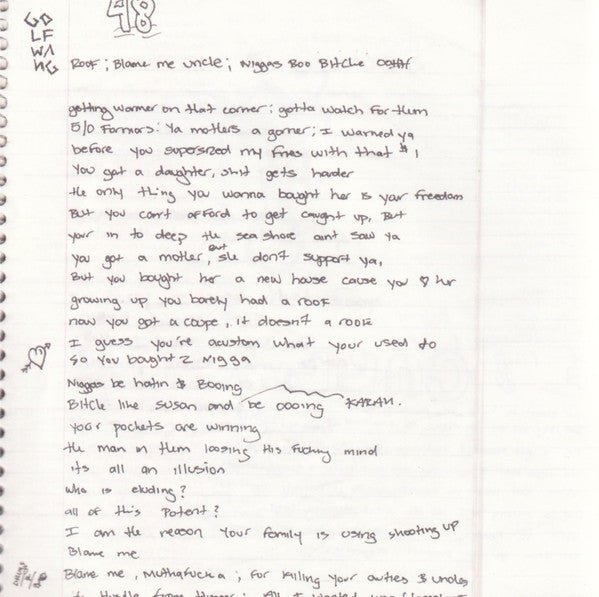 GO
LF
WA
NG
48
Roof; Blame me uncle; Niggas Boo Bitche
getting warmer on that corner; gotta watch for them
5/0 Farmors: Ya mothers a goner; I warned ya
before you supersized my fries with that $1
You got a daughter, shit gets harder
the only thing you wanna bought her is your freedom
But you can't afford to get caught up, But
your in to deep the sea shore aint saw ya
you got a mother, But she don't support ya,
But you bought her a new house cause you ♡ her
growing up you barely had a roof
now you got a coupe, it doesn't a roof
I guess you're acustom what your used to
So you bought 2 Nigga
Niggas be hatin & Booing
Bitche like Susan and be oooing KARAH.
your pockets are winning
the man in them loosing His Fucking mind
its all an illusion
who is eluding?
all of this Potent?
I am the reason your family is using shooting up
Blame me
Blame me, Muthafucka; for killing your aunties & uncles